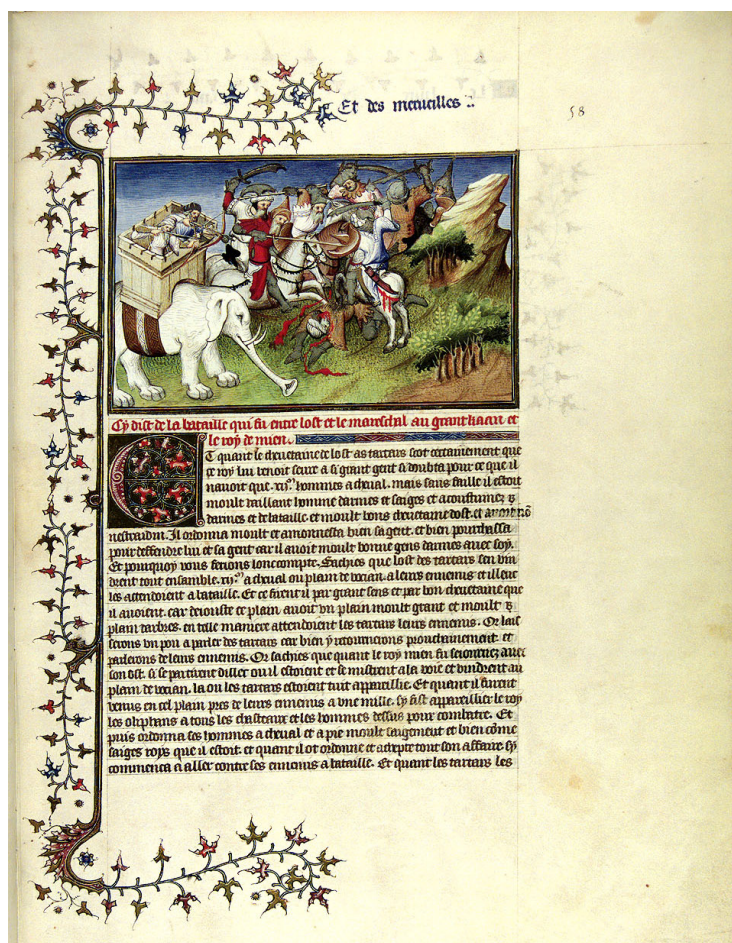 Et des merueilles
58
Cy dist de la bataille qui fu entre lost et le mareschal au grant kaan et
le roy de mien.
Et quant le cheuetaine de lost as tartars scot certainement que
ce roy lui venoit seure a si grant gent si doubta pour ce que il
nauoit que .xij. hommes a cheual. mais sans faille il estoit
moult vaillant homme darmes et saiges et acoustumez
darmes et de bataille et moult bons cheuetaine dost. et auoit nō
nestraidin. Il ordonna moult et amonnesta bien sa gent. et bien pourchassa
pour deffendre lui et sa gent car il auoit moult bonne gens darmes auec soy.
Et pourquoy vous feroins lonc compte. Sachies que lost des tartars sen vin
drent tout ensamble .xij. a cheual ou plain de vocian. a leurs ennemis et illeuc
les attendoient a bataille. Et ce firent il par grant sens et par bon cheuetaine que
il auoient. car deiouste ce plain auoit vn plain moult grant et moult
plain darbres. en telle maniere attendoient les tartars leurs ennemis. Or lais
serons vn pou a parler des tartars car bien y retournerons prouchainement. et
parlerons de leurs ennemis. Or sachies que quant le roy mien fu seiournez auec
son ost. si se partirent dillec ou il estoient et se mistrent a la voie et vindrent au
plain de vocian. la ou les tartars estoient tuit appareillie. Et quant il furent
venus en cel plain pres de leurs ennemis a vne mille. sy fist appareillier le roy
les oliphans a tous les chasteaux et les hommes dessus pour combatre. Et
puis ordonna ses hommes a cheual et a pie moult saigement et bien come
saiges roys que il estoit. et quant il ot ordonne et tout son affaire. sy
commenca a aller contre ses ennemis a bataille. Et quant les tartars les